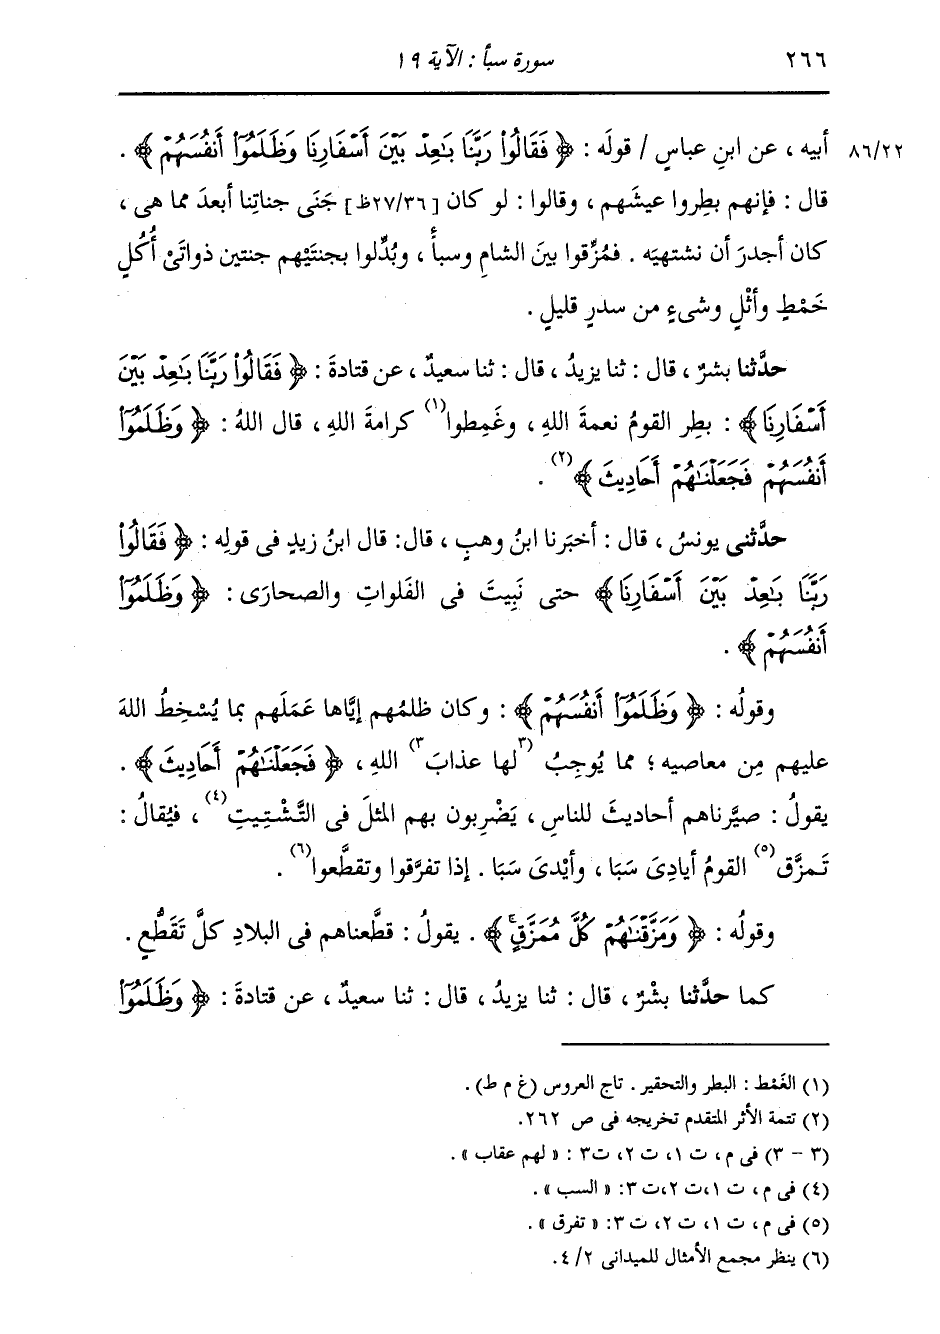 ٢٦٦ سورة سبأ : الآية ١٩
٨٦/٢٢ أبيه ، عن ابنِ عباسٍ / قولَه : ﴿ فَقَالُوا۟ رَبَّنَا بَـٰعِدْ بَيْنَ أَسْفَارِنَا وَظَلَمُوٓا۟ أَنفُسَهُمْ ﴾ .
قال : فإنهم بطِروا عيشَهم ، وقالوا : لو كان [٢٧/٣٦ظ] جَنَى جناتِنا أبعدَ مما هى ،
كان أجدرَ أن نشتهيَه . فمُزِّقوا بينَ الشامِ وسبأَ ، وبُدِّلوا بجنتَيْهم جنتين ذواتَىْ أُكُلٍ
خَمْطٍ وأثْلٍ وشىءٍ من سدرٍ قليلٍ .
حدَّثنا بشرٌ ، قال : ثنا يزيدُ ، قال : ثنا سعيدٌ ، عن قتادةَ : ﴿ فَقَالُوا۟ رَبَّنَا بَـٰعِدْ بَيْنَ
أَسْفَارِنَا ﴾ : بطِر القومُ نعمةَ اللهِ ، وغَمِطوا(١) كرامةَ اللهِ ، قال اللهُ : ﴿ وَظَلَمُوٓا۟
أَنفُسَهُمْ فَجَعَلْنَـٰهُمْ أَحَادِيثَ ﴾(٢) .
حدَّثنى يونسُ ، قال : أخبَرنا ابنُ وهبٍ ، قال: قال ابنُ زيدٍ فى قولِه : ﴿ فَقَالُوا۟
رَبَّنَا بَـٰعِدْ بَيْنَ أَسْفَارِنَا ﴾ حتى نَبِيتَ فى الفَلواتِ والصحارَى : ﴿ وَظَلَمُوٓا۟
أَنفُسَهُمْ ﴾ .
وقولُه : ﴿ وَظَلَمُوٓا۟ أَنفُسَهُمْ ﴾ : وكان ظلمُهم إيَّاها عَمَلَهم بما يُسْخِطُ اللهَ
عليهم مِن معاصيه ؛ مما يُوجِبُ (٣لها عذابَ٣) اللهِ ، ﴿ فَجَعَلْنَـٰهُمْ أَحَادِيثَ ﴾ .
يقولُ : صيَّرناهم أحاديثَ للناسِ ، يَضْرِبون بهم المثلَ فى التَّشْتِيتِ(٤) ، فيُقالُ :
تَمزَّق(٥) القومُ أيادِىَ سَبَا ، وأيْدِىَ سَبَا . إذا تفرَّقوا وتقطَّعوا(٦) .
وقولُه : ﴿ وَمَزَّقْنَـٰهُمْ كُلَّ مُمَزَّقٍ ﴾ . يقولُ : قطَّعناهم فى البلادِ كلَّ تَقَطُّعٍ .
كما حدَّثنا بشْرٌ ، قال : ثنا يزيدُ ، قال : ثنا سعيدٌ ، عن قتادةَ : ﴿ وَظَلَمُوٓا۟
(١) الغَمْط : البطر والتحقير . تاج العروس (غ م ط) .
(٢) تتمة الأثر المتقدم تخريجه فى ص ٢٦٢.
(٣ - ٣) فى م، ت ١، ت ٢، ت٣ : « لهم عقاب » .
(٤) فى م، ت ١،ت ٢،ت ٣: « السب » .
(٥) فى م، ت ١، ت ٢، ت ٣: « تفرق » .
(٦) ينظر مجمع الأمثال للميدانى ٤/٢.